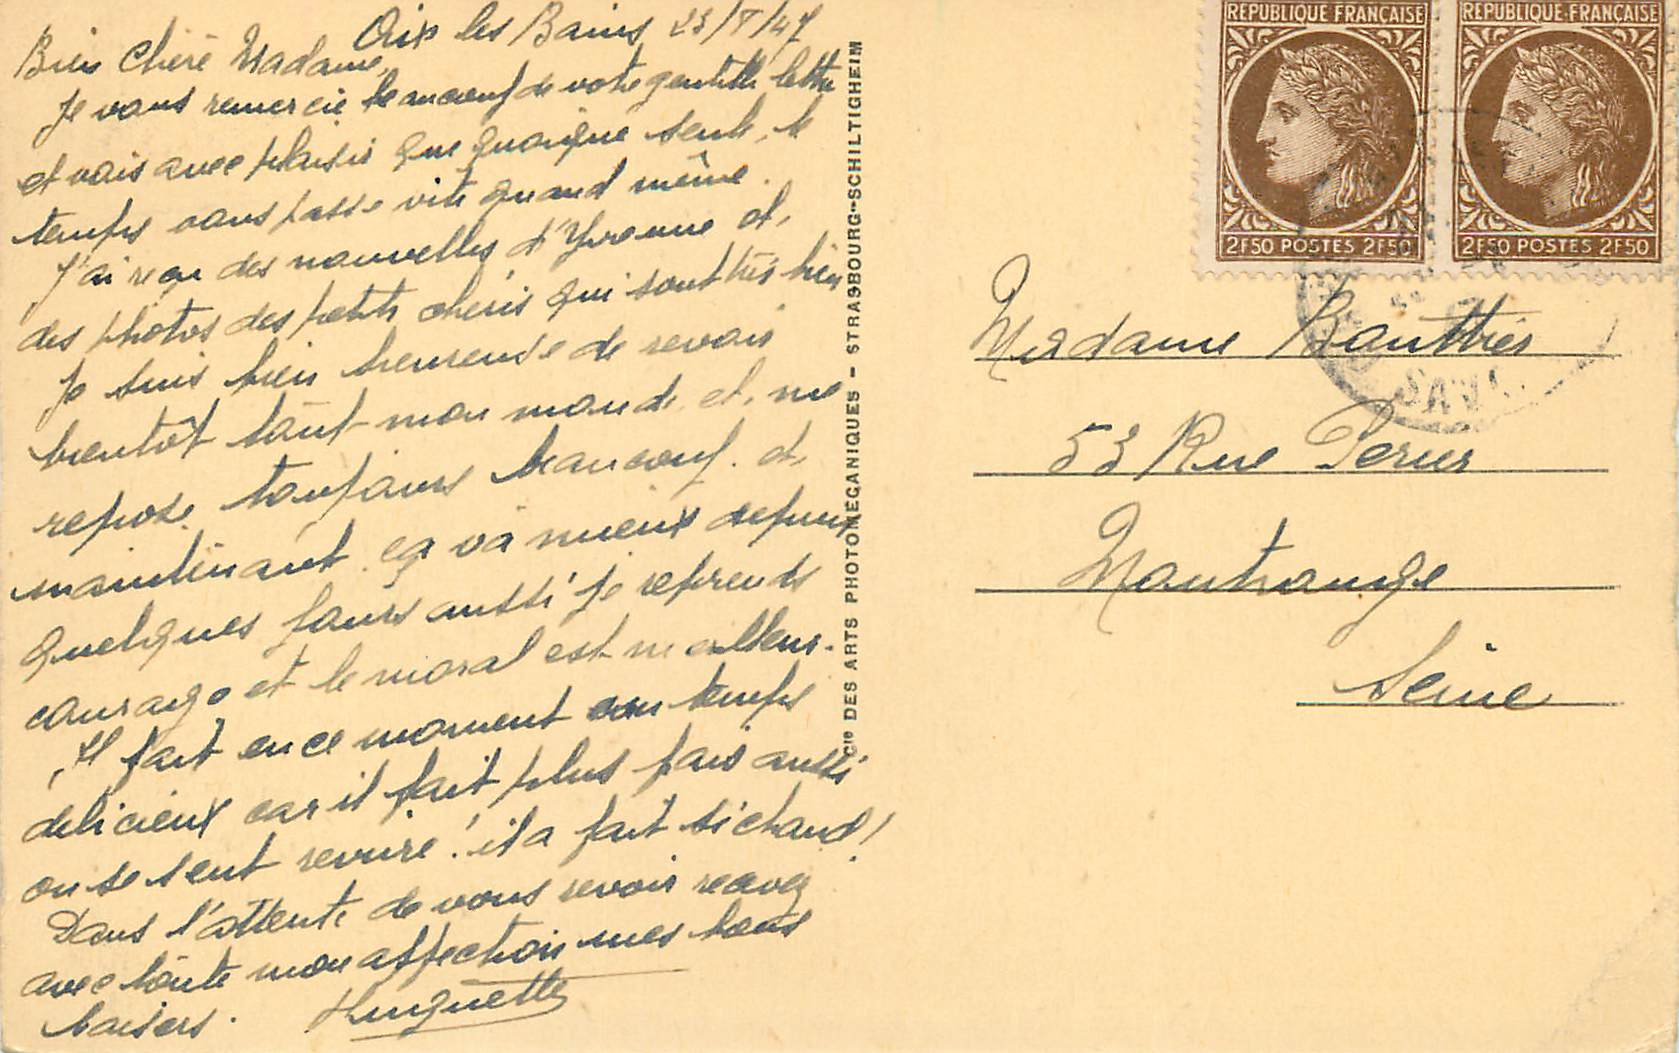 Aix les Bains 23/8/47
Bien Chère Madame,
Je vous remercie beaucoup de votre gentille lettre
et vois avec plaisir que quoique seule, le
temps vous passe vite quand même.
J'ai reçu des nouvelles d'Yvonne et,
des photos des petits chéris qui sont très bien
Je suis bien heureuse de revoir
bientôt tout mon monde et, me
repose toujours beaucoup. et,
maintenant ça va mieux depuis
quelques jours aussi je reprends
courage et le moral est meilleur.
Il fait en ce moment un temps
délicieux car il fait plus frais aussi
on se sent revivre! il a fait si chaud!
Dans l'attente de vous revoir recevez
avec toute mon affection mes bons
baisers.
Huguette
Cie DES ARTS PHOTOMECANIQUES - STRASBOURG-SCHILTIGHEIM
REPUBLIQUE FRANÇAISE
2F50 POSTES 2F50
REPUBLIQUE FRANÇAISE
2F50 POSTES 2F50
Madame Gauthier
53 Rue Perier
Montrouge
Seine